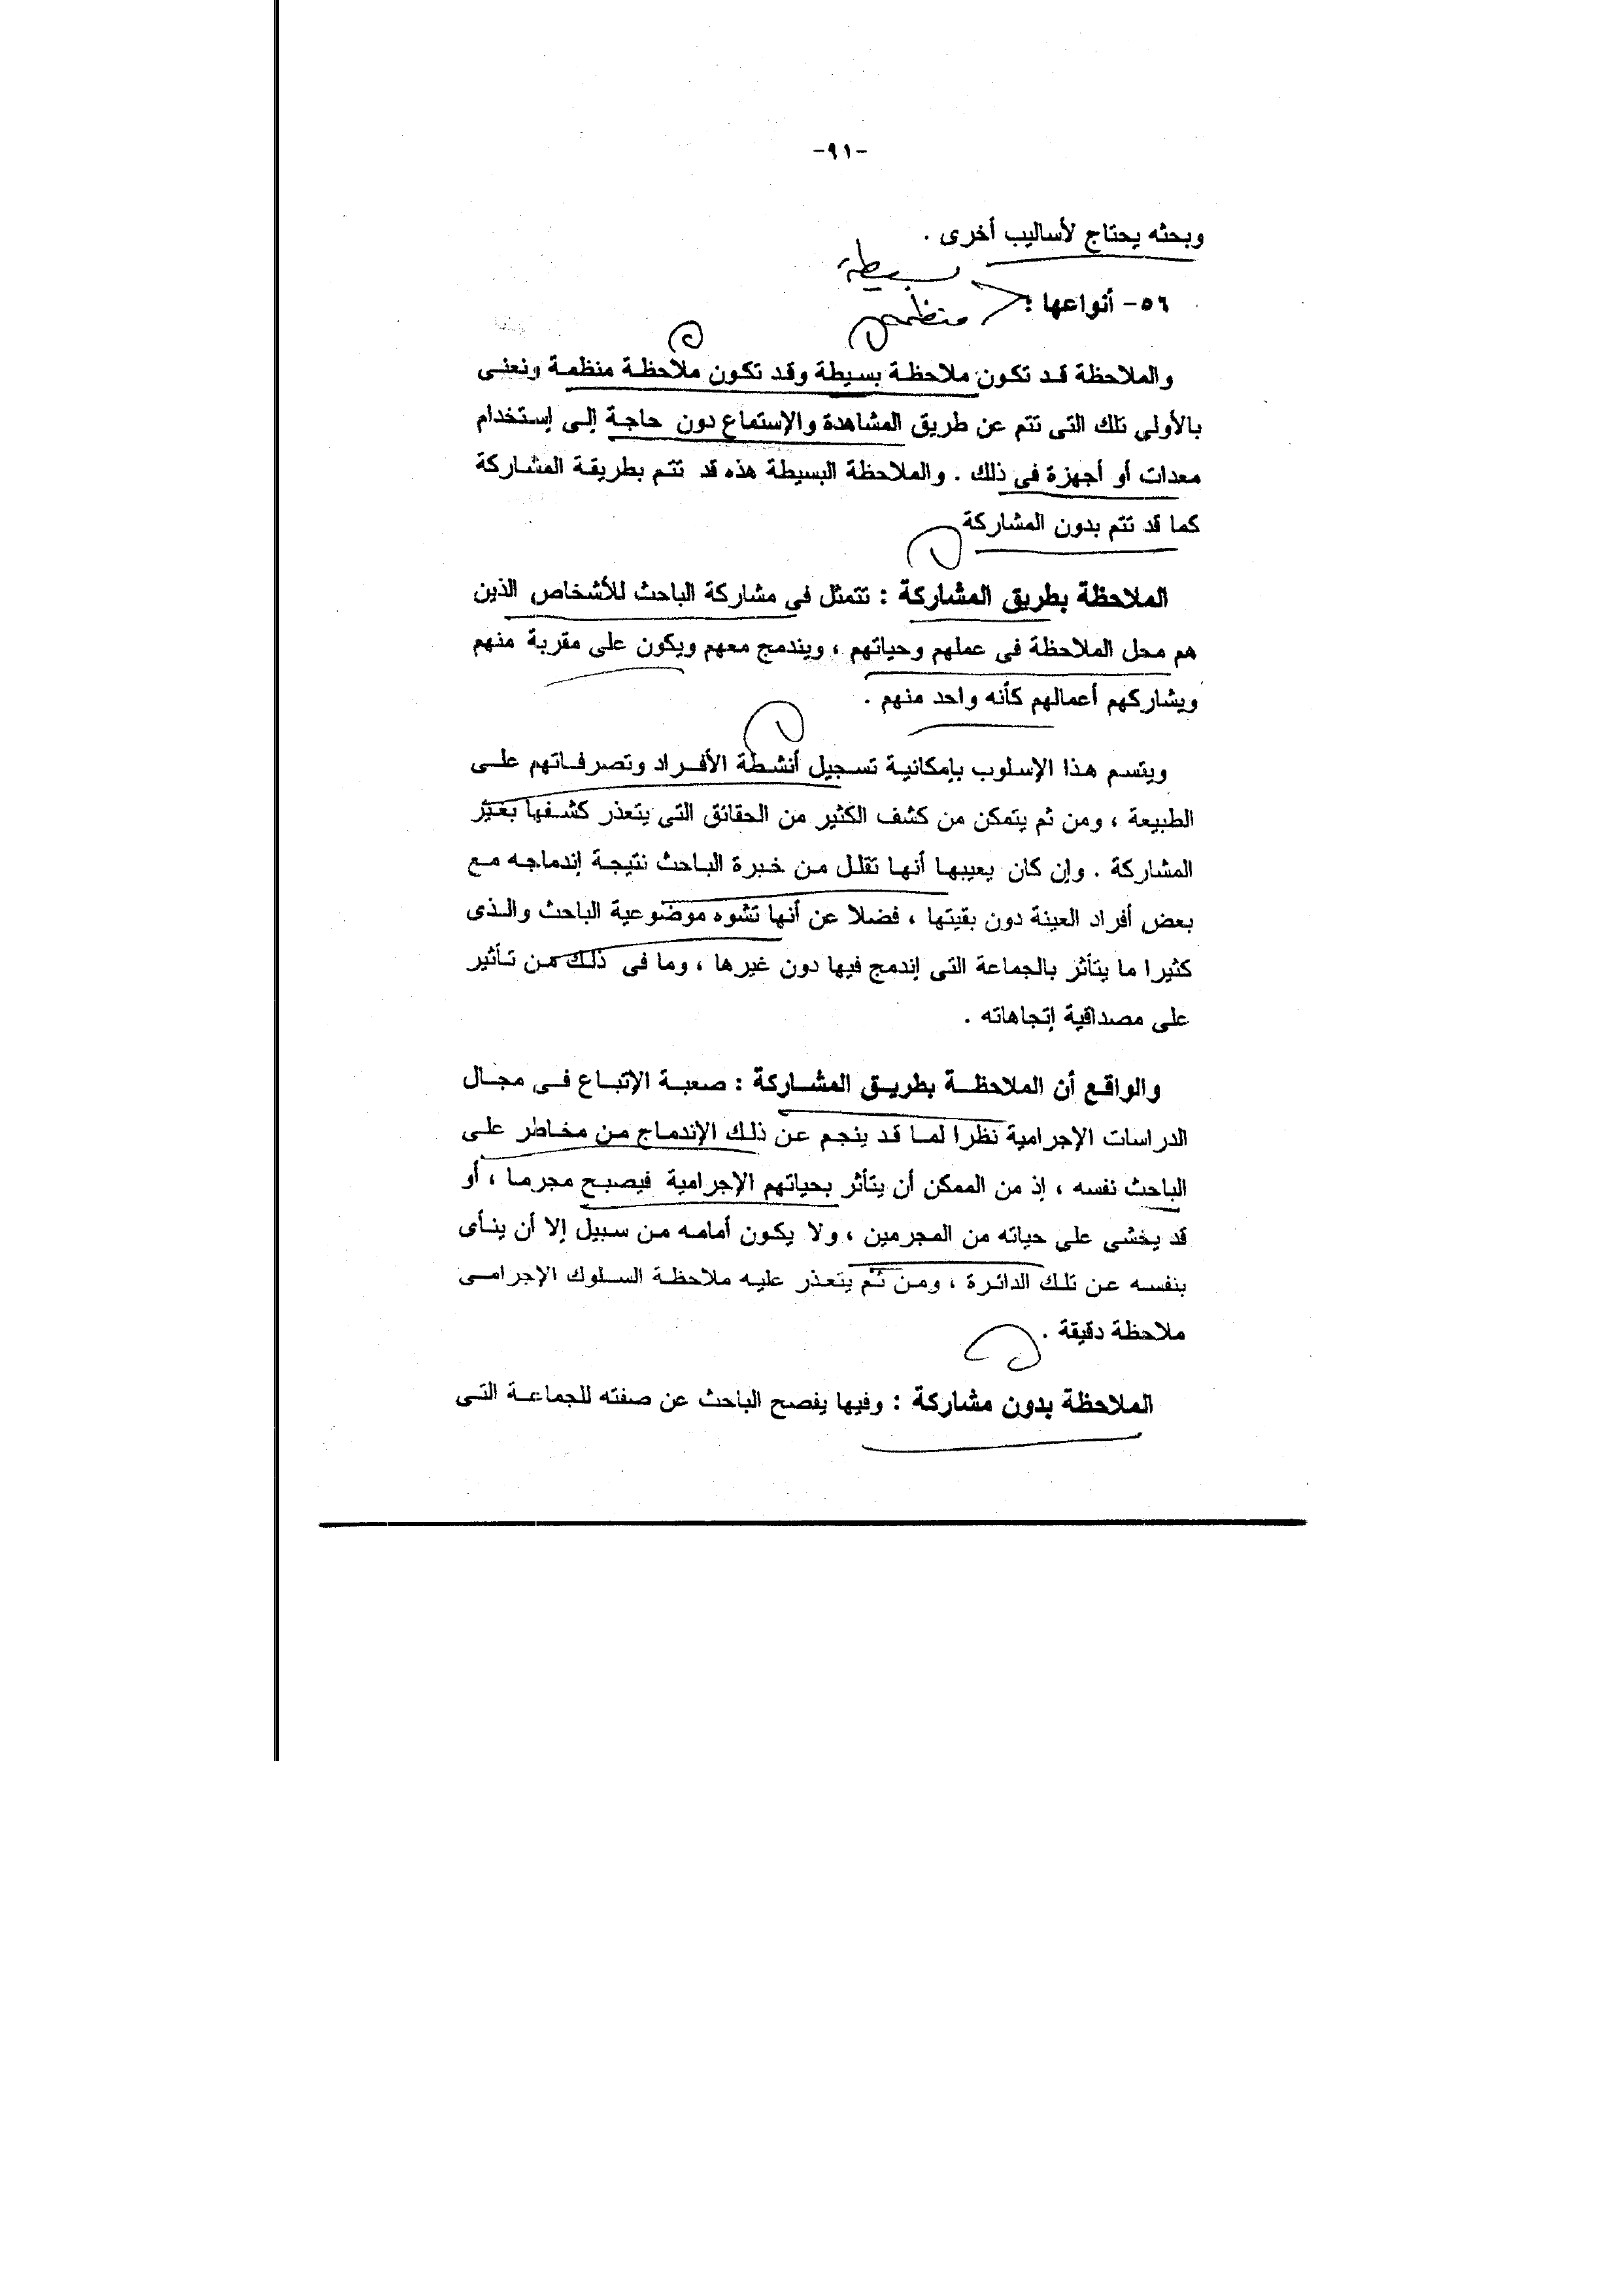 -٩١-
وبحثه يحتاج لأساليب أخرى .
بسيطة
٥٦- أنواعها :
منظمه
والملاحظة قد تكون ملاحظة بسيطة وقد تكون ملاحظة منظمة ونعنى
بالأولي تلك التى تتم عن طريق المشاهدة والإستماع دون حاجة إلى إستخدام
معدات أو أجهزة فى ذلك . والملاحظة البسيطة هذه قد تتم بطريقة المشاركة
كما قد تتم بدون المشاركة
الملاحظة بطريق المشاركة : تتمثل في مشاركة الباحث للأشخاص الذين
هم محل الملاحظة فى عملهم وحياتهم ، ويندمج معهم ويكون على مقربة منهم
ويشاركهم أعمالهم كأنه واحد منهم .
ويتسم هذا الإسلوب بإمكانية تسجيل أنشطة الأفراد وتصرفاتهم على
الطبيعة ، ومن ثم يتمكن من كشف الكثير من الحقائق التى يتعذر كشفها بغير
المشاركة . وإن كان يعيبها أنها تقلل من خبرة الباحث نتيجة إندماجه مع
بعض أفراد العينة دون بقيتها ، فضلا عن أنها تشوه موضوعية الباحث والذى
كثيرا ما يتأثر بالجماعة التى إندمج فيها دون غيرها ، وما فى ذلك من تأثير
على مصداقية إتجاهاته .
والواقع أن الملاحظة بطريق المشاركة : صعبة الإتباع فى مجال
الدراسات الإجرامية نظرا لما قد ينجم عن ذلك الإندماج من مخاطر على
الباحث نفسه ، إذ من الممكن أن يتأثر بحياتهم الإجرامية فيصبح مجرما ، أو
قد يخشى على حياته من المجرمين ، ولا يكون أمامه من سبيل إلا أن ينأى
بنفسه عن تلك الدائرة ، ومن ثم يتعذر عليه ملاحظة السلوك الإجرامى
ملاحظة دقيقة .
الملاحظة بدون مشاركة : وفيها يفصح الباحث عن صفته للجماعة التى